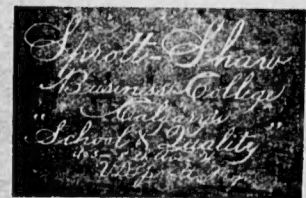 Sprott-Shaw
Business College
Calgary
"School of Quality"